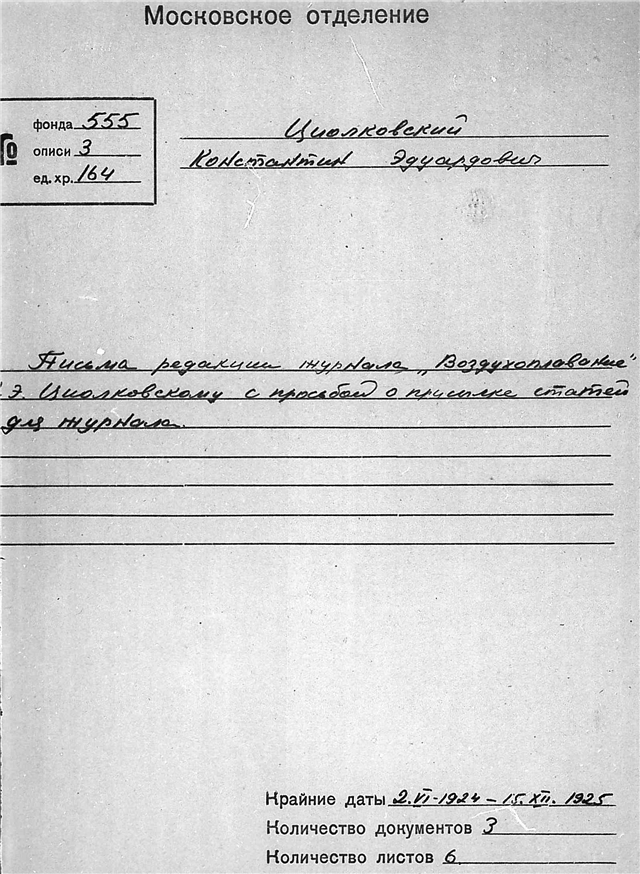 Московское отделение
фонда 555
№ описи 3
ед. хр. 164
Циолковский
Константин Эдуардович
Письма редакции журнала „Воздухоплавание"
Э. Циолковскому с просьбой о присылке статей
для журнала.
Крайние даты 2.VI-1924 – 15.XII.1925
Количество документов 3
Количество листов 6